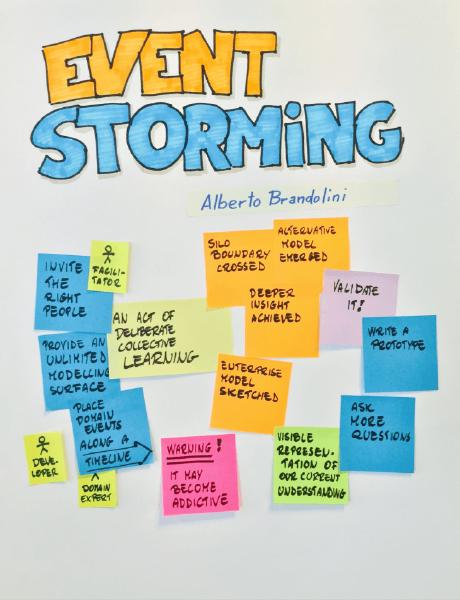 EVENT
STORMiNG
Alberto Brandolini
INVITE
THE
RIGHT
PEOPLE
FACILI-
TATOR
PROVIDE AN
UNLIMITED
MODELLING
SURFACE
PLACE
DOMAIN
EVENTS
ALONG A
TIMELINE
DEVE-
LOPER
DOMAIN
EXPERT
AN ACT OF
DELIBERATE
COLLECTIVE
LEARNING
SILO
BOUNDARY
CROSSED
ALTERNATIVE
MODEL
EMERGED
DEEPER
INSIGHT
ACHIEVED
ENTERPRISE
MODEL
SKETCHED
WARNING!
IT MAY
BECOME
ADDICTIVE
VALIDATE
IT!
WRITE A
PROTOTYPE
ASK
MORE
QUESTIONS
VISIBLE
REPRESEN-
TATION OF
OUR CURRENT
UNDERSTANDING